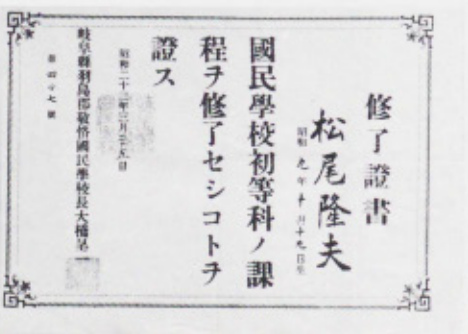 修了證書
松尾隆夫
昭和九年十月十九日生
國民學校初等科ノ課
程ヲ修了セシコトヲ
證ス
昭和二十 年三月 五日
岐阜縣羽島郡 國民學校長大橋
第四十七號